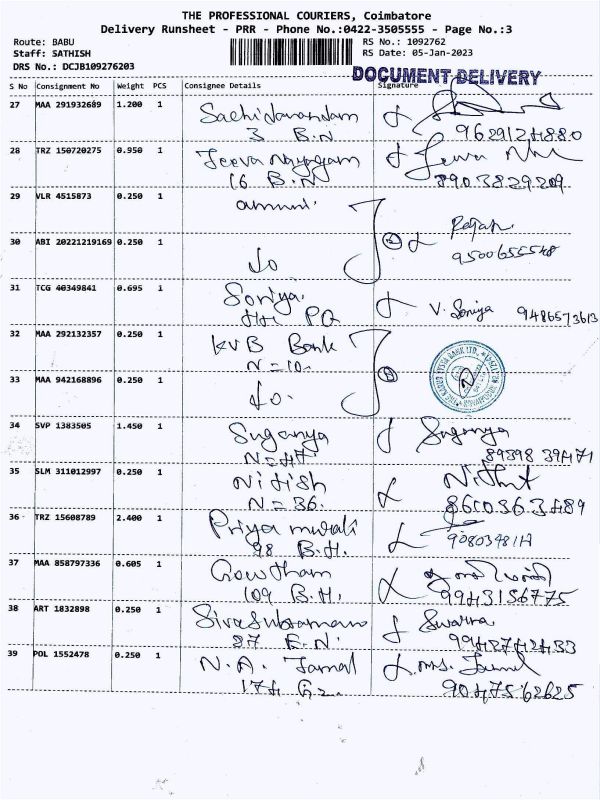 THE PROFESSIONAL COURIERS, Coimbatore
Delivery Runsheet - PRR - Phone No.:0422-3505555 - Page No.:3
Route: BABU
RS No.: 1092762
Staff: SATHISH
RS Date: 05-Jan-2023
DRS No.: DCJB109276203
DOCUMENT DELIVERY
S No Consignment No Weight PCS Consignee Details Signature
27 MAA 291932689 1.200 1 Sachidanandam
3 B.N 9629124880
28 TRZ 150720275 0.950 1 Jeeva Nayagam
16 B.N 8903829209
29 VLR 4515873 0.250 1
30 ABI 20221219169 0.250 1 do 9500655548
31 TCG 40349841 0.695 1 Soniya V. Soniya 9486573613
PG
32 MAA 292132357 0.250 1 KVB Bank
N=10
33 MAA 942168896 0.250 1 do.
34 SVP 1383505 1.450 1 Suganya Suganya
N=47 89398 39471
35 SLM 311012997 0.250 1 Nitish
N=36. 8610363489
36 TRZ 15608789 2.400 1 Priya murali
98 B.H.
37 MAA 858797336 0.605 1 Gowtham
109 B.H. 9943156775
38 ART 1832898 0.250 1 Sivasubramani
27 E.N. 9942742433
39 POL 1552478 0.250 1 N.A. Jamal
174 9047562625